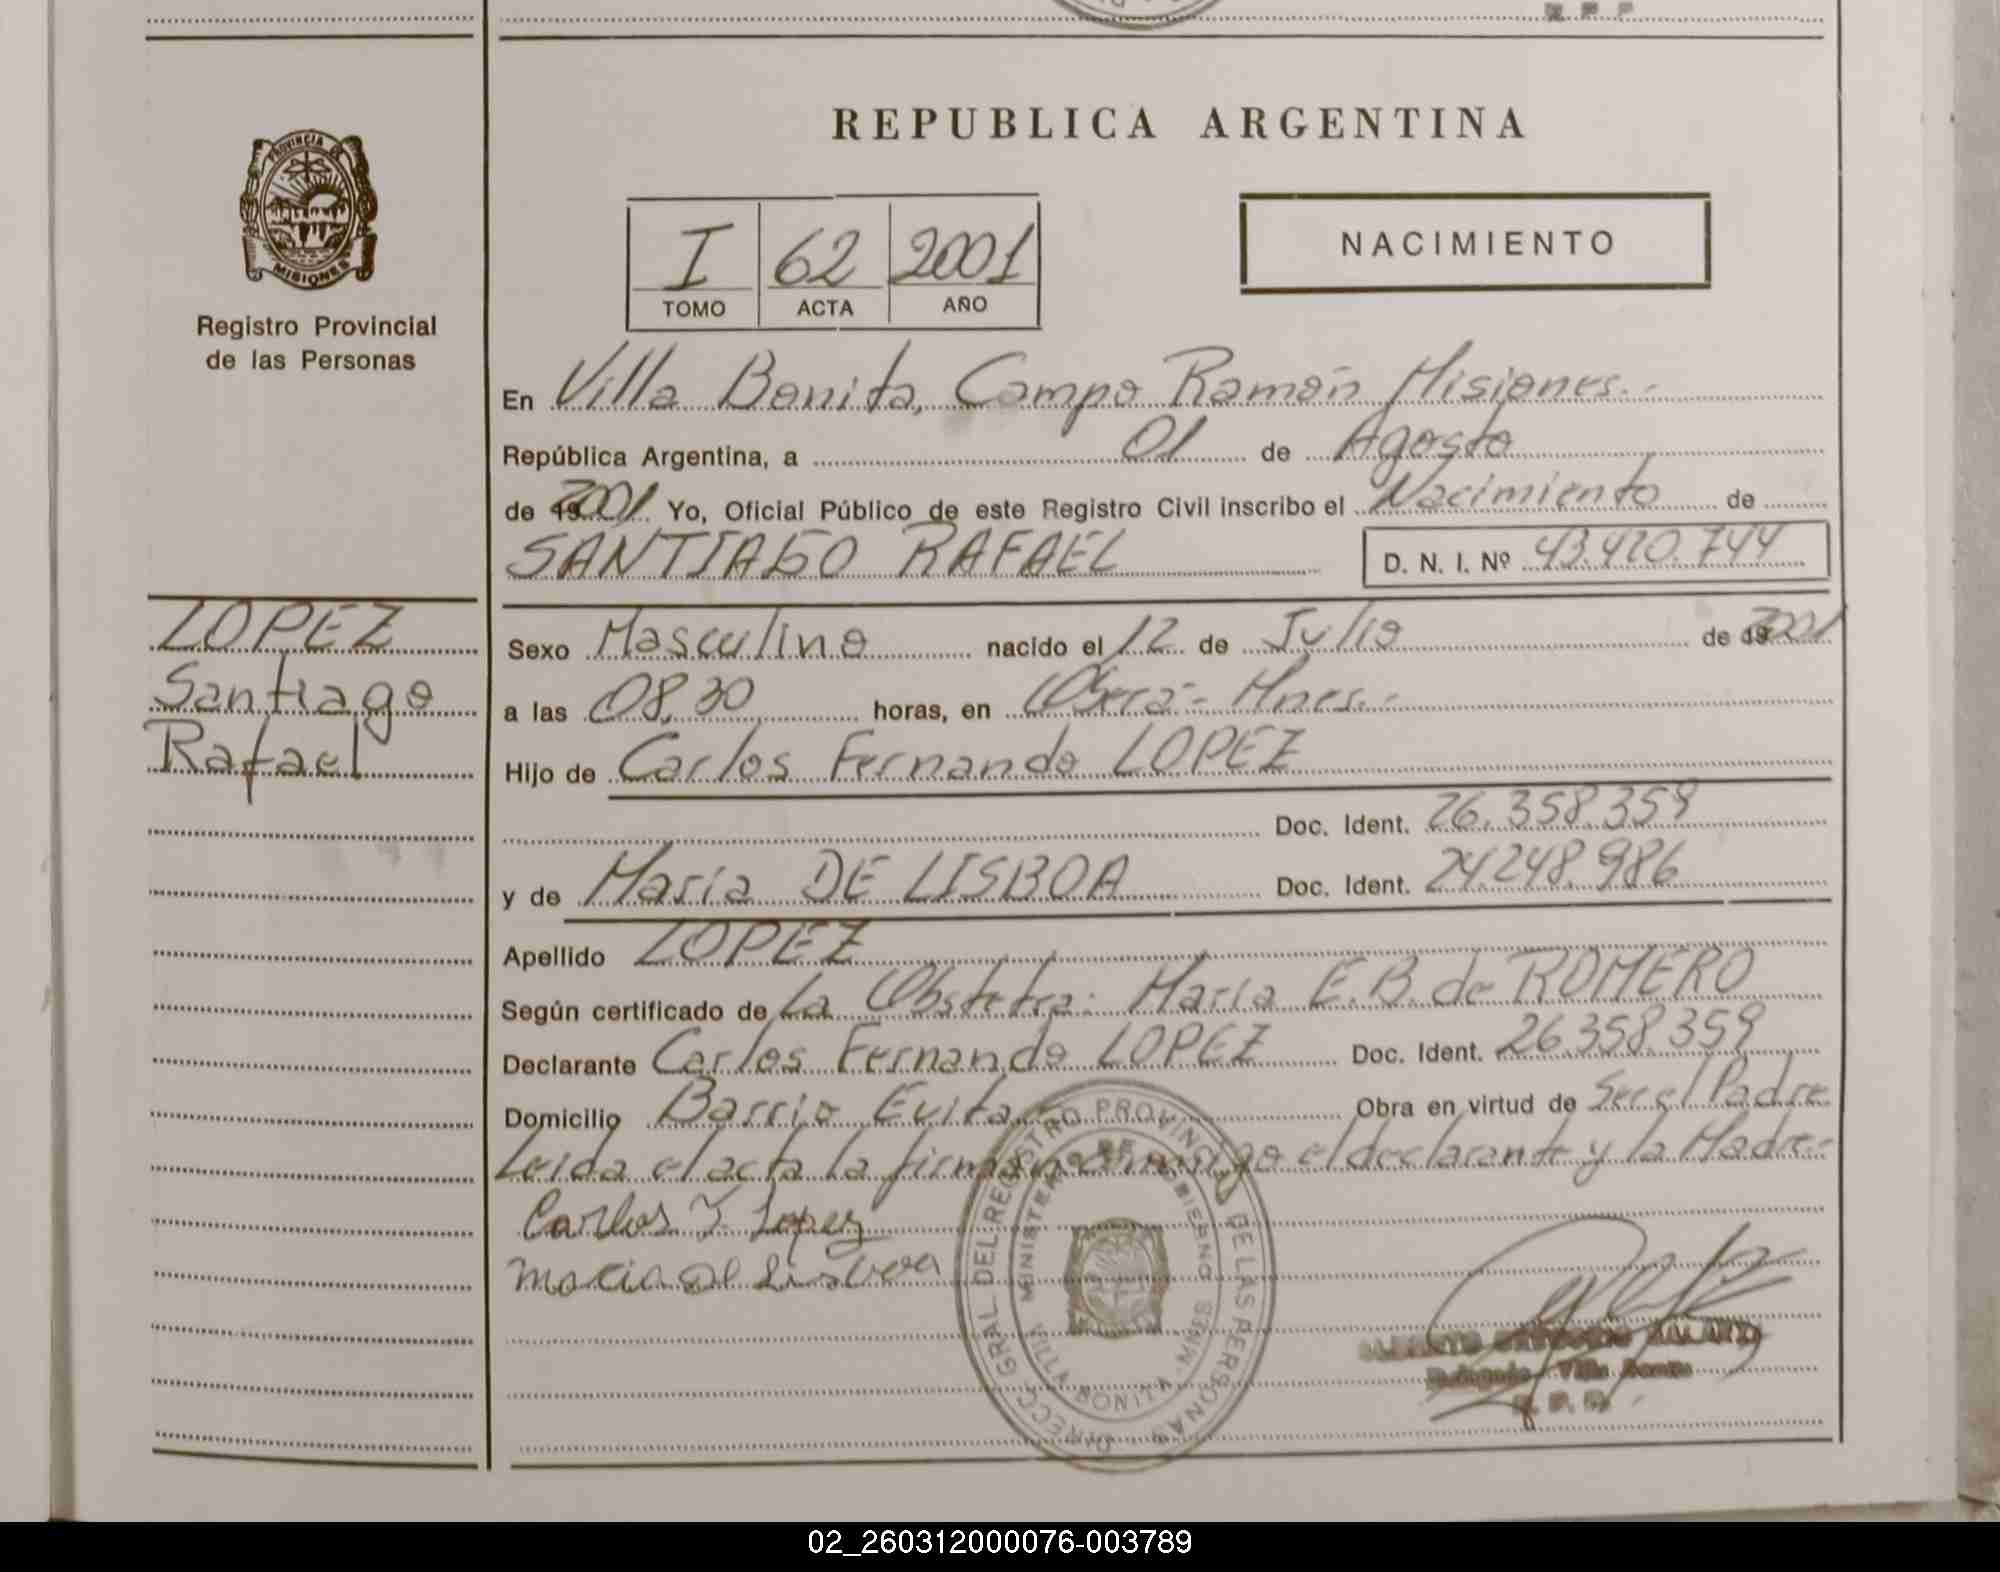 REPUBLICA ARGENTINA
PROVINCIA DE
MISIONES
Registro Provincial
de las Personas
I 62 2001
TOMO ACTA AÑO
NACIMIENTO
En Villa Bonita, Campo Ramón Misiones.-
República Argentina, a 01 de Agosto
de 2001 Yo, Oficial Público de este Registro Civil inscribo el Nacimiento de
SANTIAGO RAFAEL D. N. I. Nº 43.420.744
LOPEZ
Santiago
Rafael
Sexo Masculino nacido el 12 de Julio de 2001
a las 08,30 horas, en Oberá - Mnes.-
Hijo de Carlos Fernando LOPEZ
Doc. Ident. 26.358.359
y de Maria DE LISBOA Doc. Ident. 24.248.986
Apellido LOPEZ
Según certificado de La Obstetra: Maria E.B. de ROMERO
Declarante Carlos Fernando LOPEZ Doc. Ident. 26.358.359
Domicilio Barrio Evita Obra en virtud de Ser el Padre
Leida el acta la firman conmigo el declarante y la Madre.-
Carlos F. Lopez
Maria de Lisboa
DIRECC. GRAL. DEL REGISTRO PROVINCIAL DE LAS PERSONAS
MINISTERIO DE GOBIERNO
VILLA BONITA - MNES
02_260312000076-003789